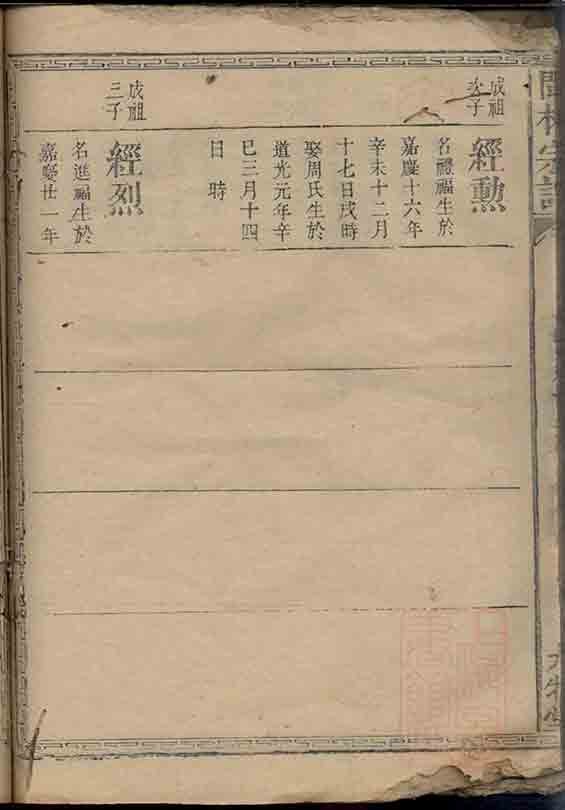 成祖
次子
經勳
名禮福生於
嘉慶十六年
辛未十二月
十七日戌時
娶周氏生於
道光元年辛
巳三月十四
日 時
成祖
三子
經烈
名進福生於
嘉慶廿一年